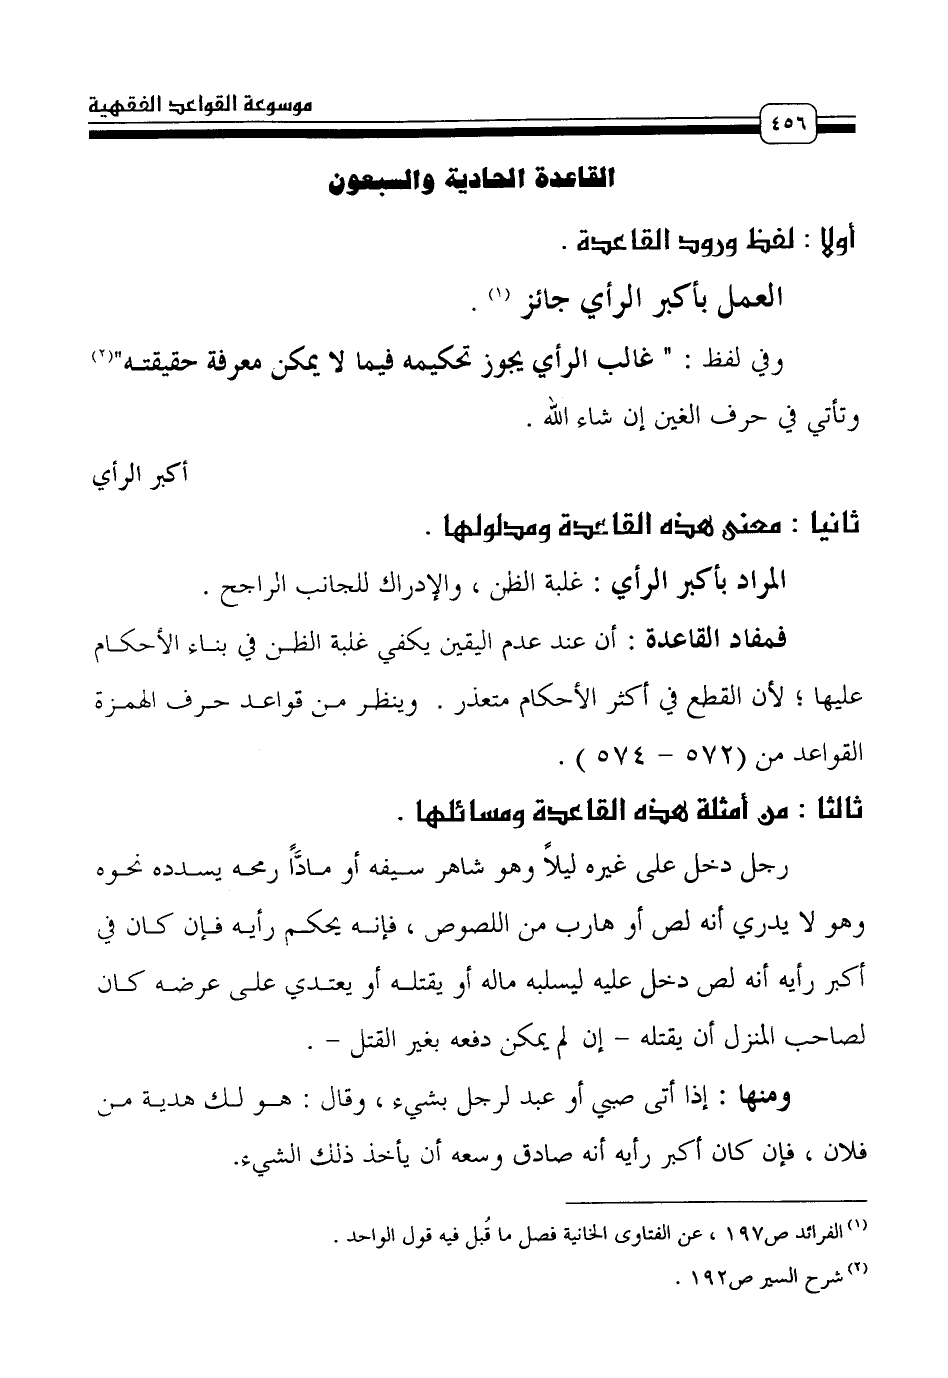 موسوعة القواعد الفقهية
٤٥٦
القاعدة الحادية والسبعون
أولا : لفظ ورود القاعدة .
العمل بأكبر الرأي جائز (١) .
وفي لفظ : " غالب الرأي يجوز تحكيمه فيما لا يمكن معرفة حقيقته"(٢)
وتأتي في حرف الغين إن شاء الله .
أكبر الرأي
ثانيا : معنى هذه القاعدة ومدلولها .
المراد بأكبر الرأي : غلبة الظن ، والإدراك للجانب الراجح .
فمفاد القاعدة : أن عند عدم اليقين يكفي غلبة الظن في بناء الأحكام
عليها ؛ لأن القطع في أكثر الأحكام متعذر . وينظر من قواعد حرف الهمزة
القواعد من (٥٧٢ – ٥٧٤ ) .
ثالثا : من أمثلة هذه القاعدة ومسائلها .
رجل دخل على غيره ليلاً وهو شاهر سيفه أو مادّاً رمحه يسدده نحوه
وهو لا يدري أنه لص أو هارب من اللصوص ، فإنه يحكم رأيه فإن كان في
أكبر رأيه أنه لص دخل عليه ليسلبه ماله أو يقتله أو يعتدي على عرضه كان
لصاحب المنزل أن يقتله – إن لم يمكن دفعه بغير القتل – .
ومنها : إذا أتى صبي أو عبد لرجل بشيء ، وقال : هو لك هدية من
فلان ، فإن كان أكبر رأيه أنه صادق وسعه أن يأخذ ذلك الشيء.
(١) الفرائد ص١٩٧ ، عن الفتاوى الخانية فصل ما قُبل فيه قول الواحد .
(٢) شرح السير ص١٩٢ .